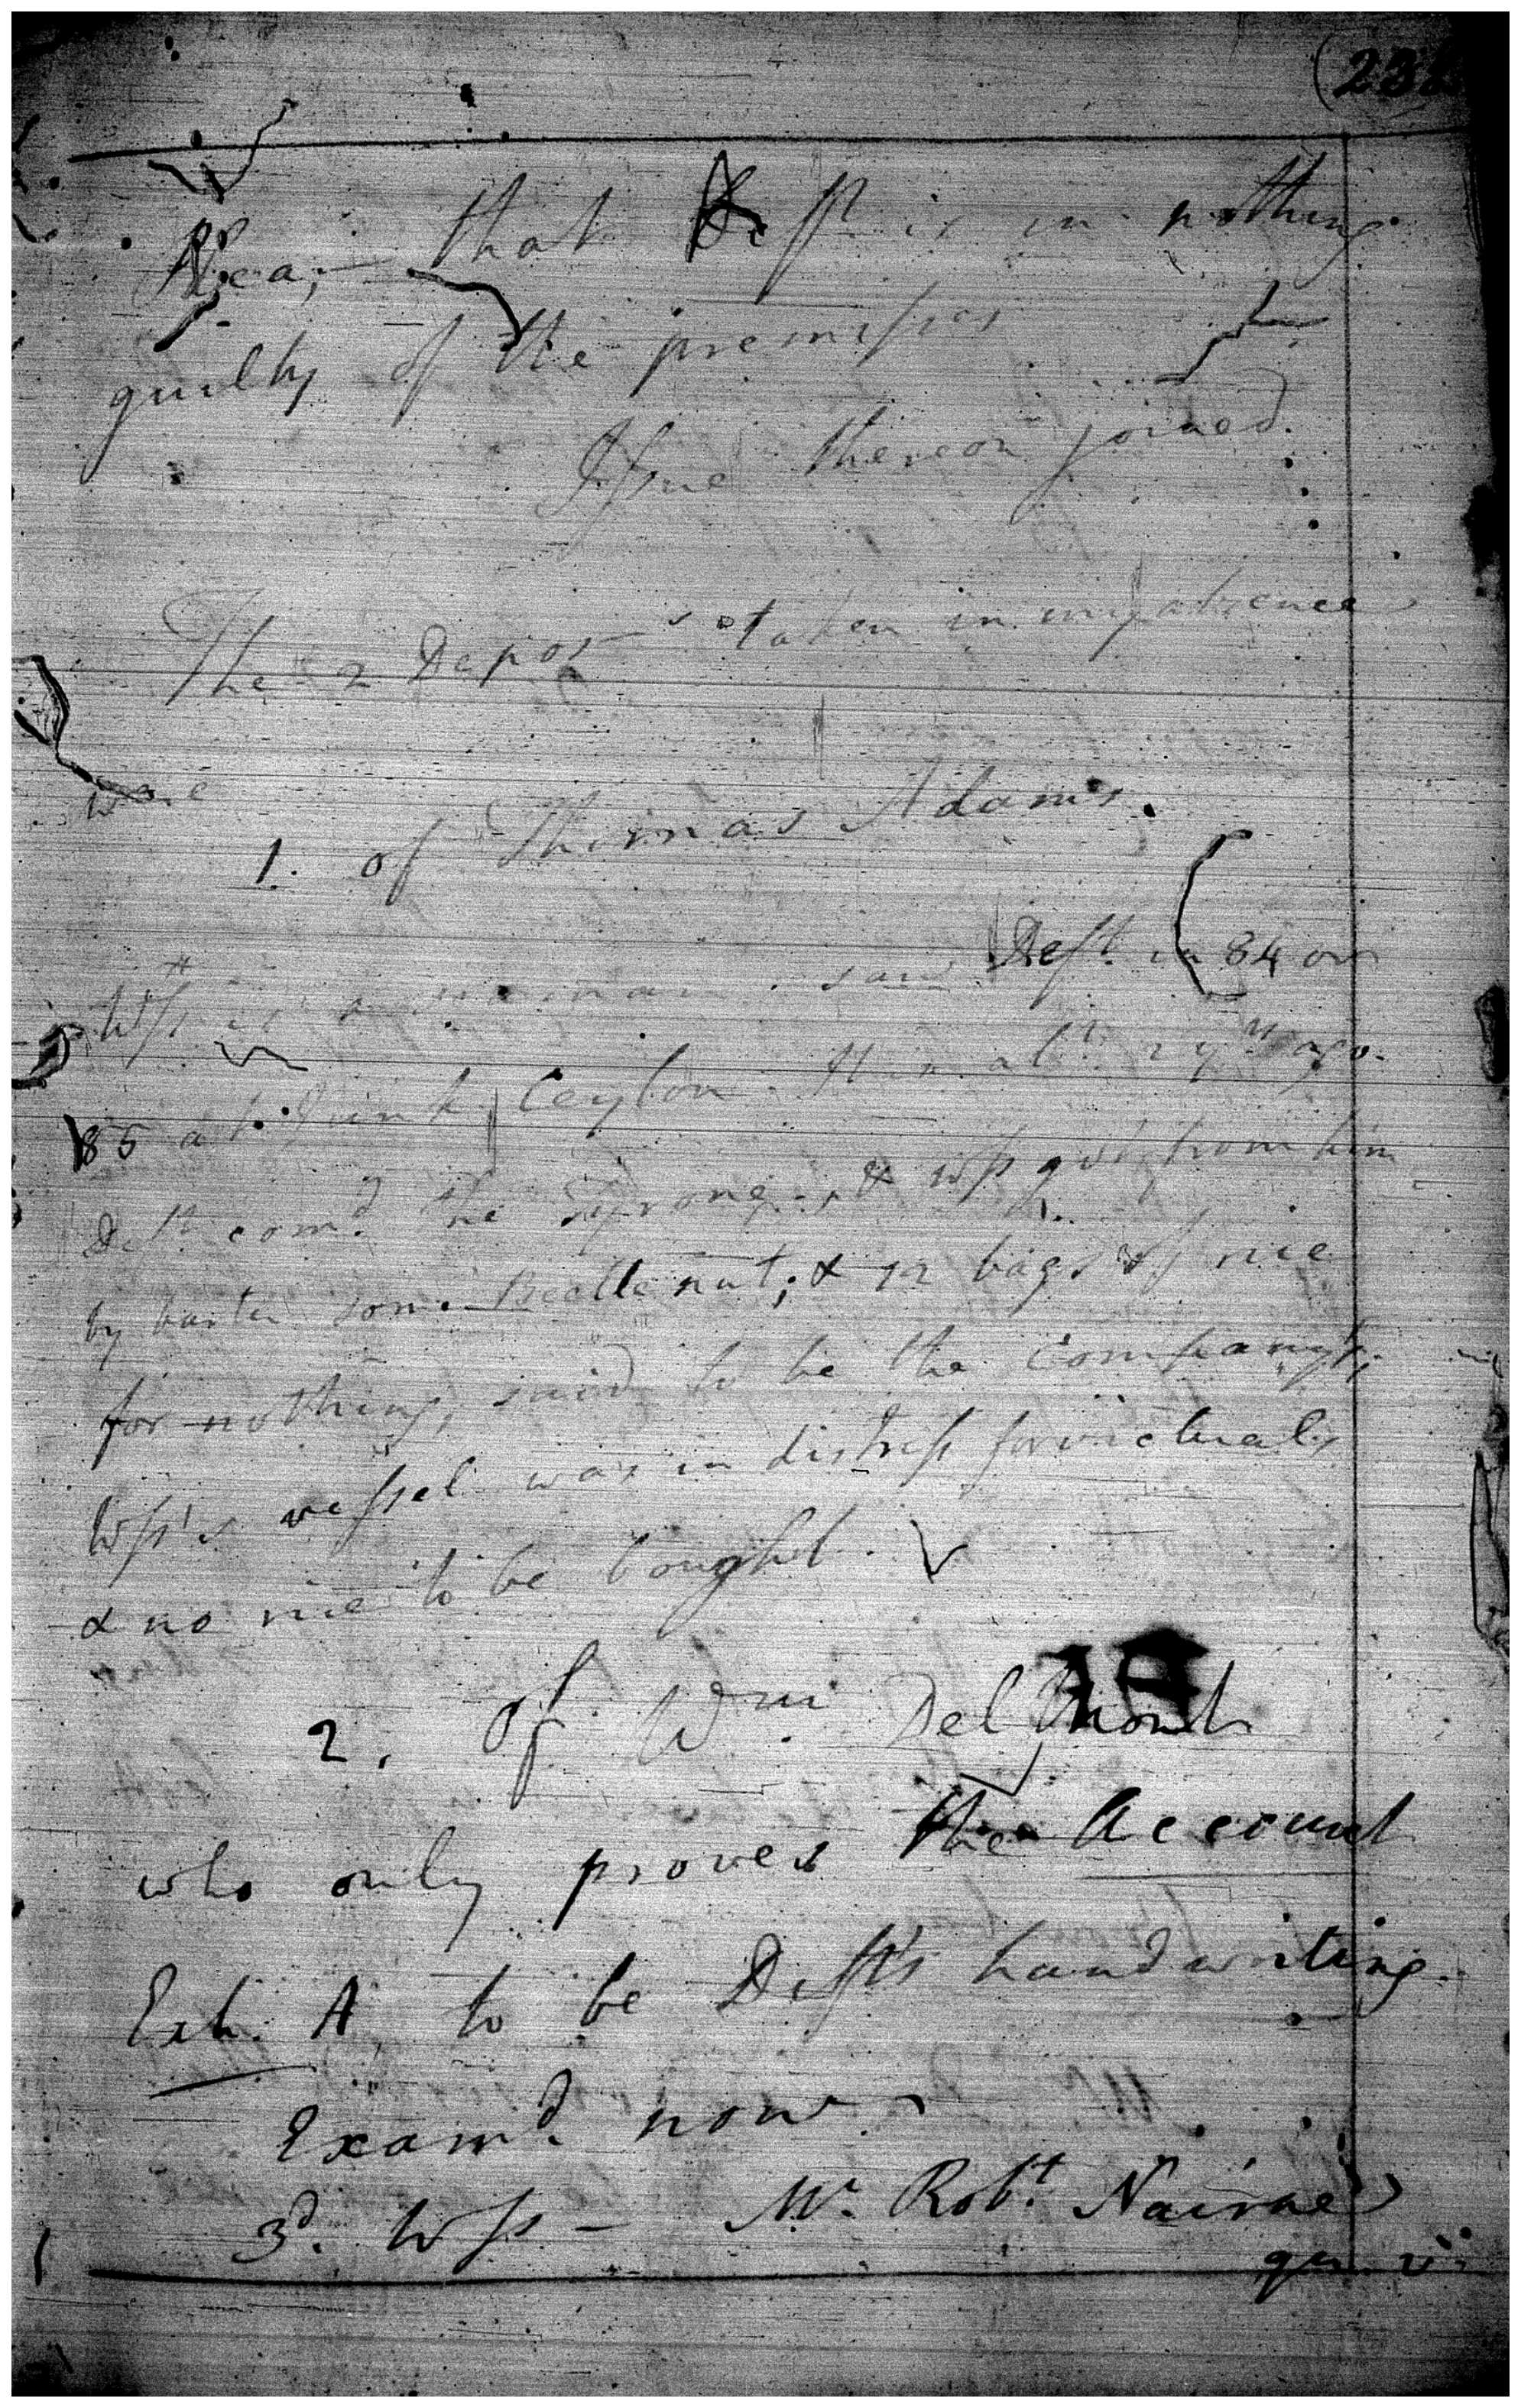 Plea, — that Deft is in nothing
guilty of the premises
Issue thereon joined.
The 2 Depos.ns taken in my absence
were
1. of Thomas Adams.
Wss is a seaman. saw Deft. in 84 or
85 at Ceylon ago.
Deft. com.d the & Wss got from him
by barter some Beetle nut; & 12 bags of rice
for nothing, said to be the Company's,
Wss's vessel was in distress for victuals
& no rice to be bought.
2. Of Wm. Del
who only proves the Account
Exh. A to be Deft's handwriting.
Exam.d now
3.d Wss — Mr. Rob.t Nairne